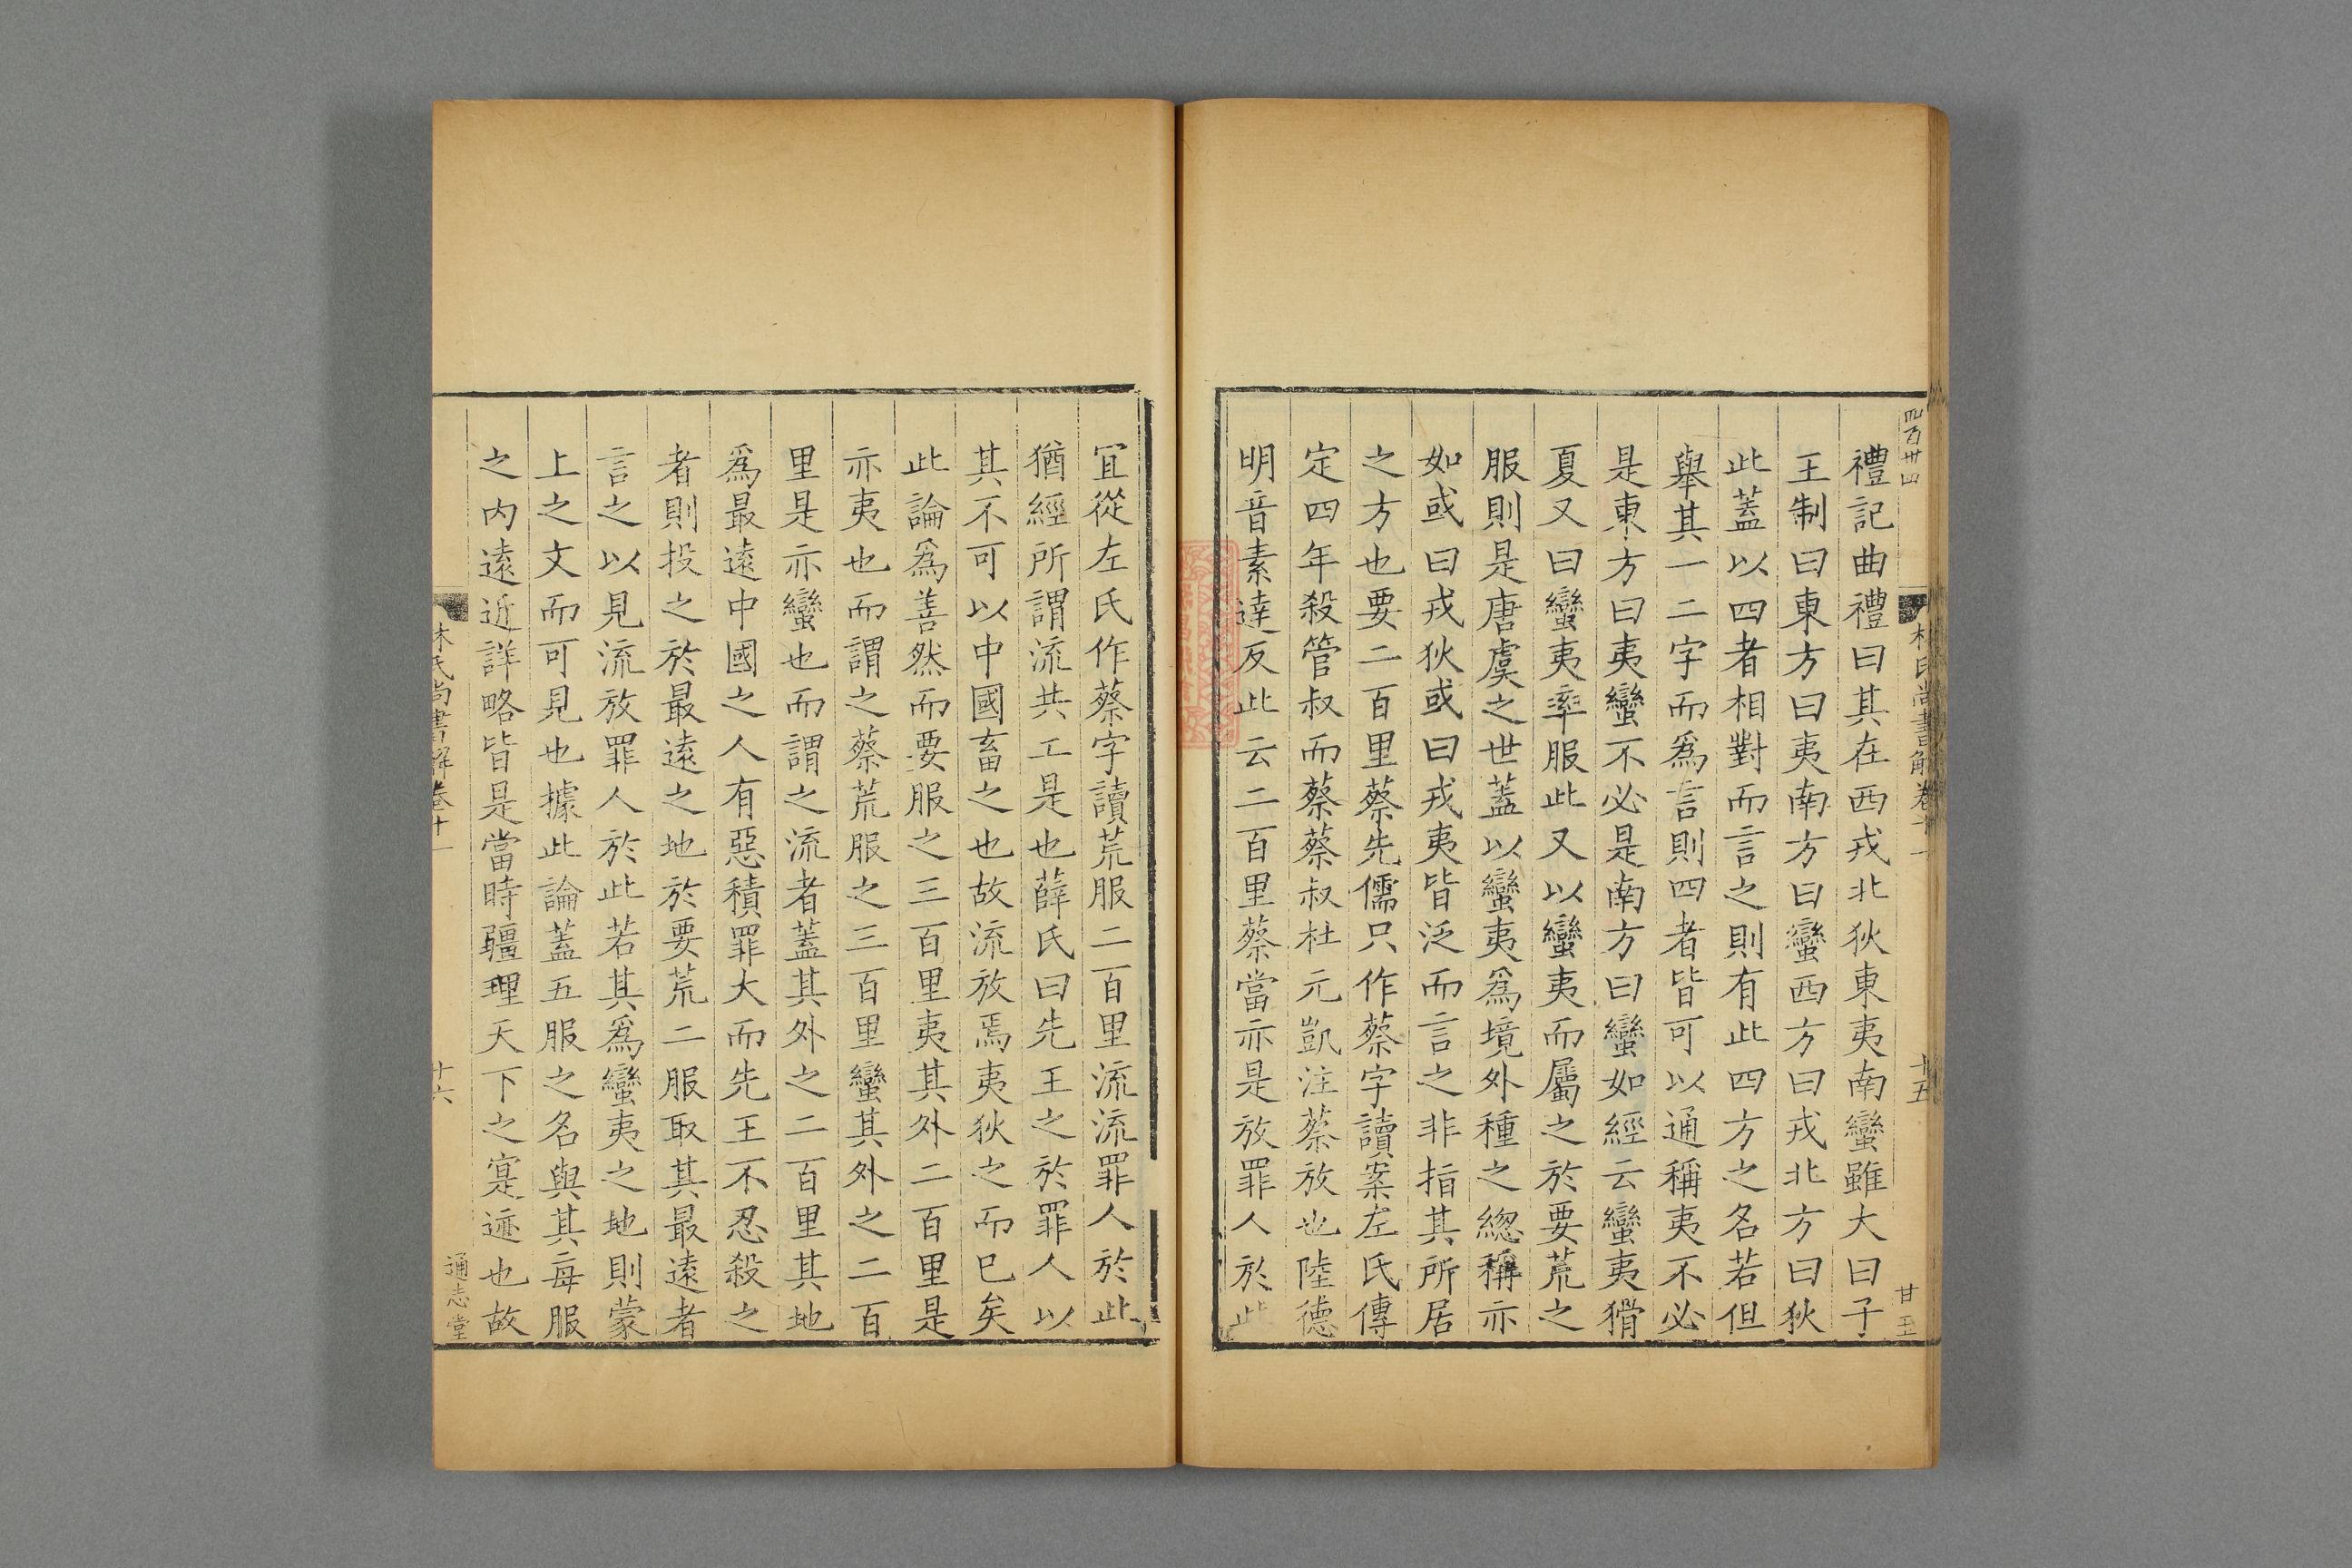 四百卅四
林氏尚書解卷十一
十五
甘玉
禮記曲禮曰其在西戎北狄東夷南蠻雖大曰子
王制曰東方曰夷南方曰蠻西方曰戎北方曰狄
此蓋以四者相對而言之則有此四方之名若但
舉其一二字而爲言則四者皆可以通稱夷不必
是東方曰夷蠻不必是南方曰蠻如經云蠻夷猾
夏又曰蠻夷率服此又以蠻夷而屬之於要荒之
服則是唐虞之世蓋以蠻夷爲境外種之緫稱亦
如或曰戎狄或曰戎夷皆泛而言之非指其所居
之方也要二百里蔡先儒只作蔡字讀案左氏傳
定四年殺管叔而蔡蔡叔杜元凱注蔡放也陸德
明音素達反此云二百里蔡當亦是放罪人於此
冝從左氏作蔡字讀荒服二百里流流罪人於此
猶經所謂流共工是也薛氏曰先王之於罪人以
其不可以中國畜之也故流放焉夷狄之而巳矣
此論爲善然而要服之三百里夷其外二百里是
亦夷也而謂之蔡荒服之三百里蠻其外之二百
里是亦蠻也而謂之流者蓋其外之二百里其地
爲最遠中國之人有惡積罪大而先王不忍殺之
者則投之於最遠之地於要荒二服取其最遠者
言之以見流放罪人於此若其爲蠻夷之地則蒙
上之文而可見也據此論蓋五服之名與其每服
之内遠近詳略皆是當時疆理天下之寔迹也故
林氏尚書解卷十一
十六
通志堂